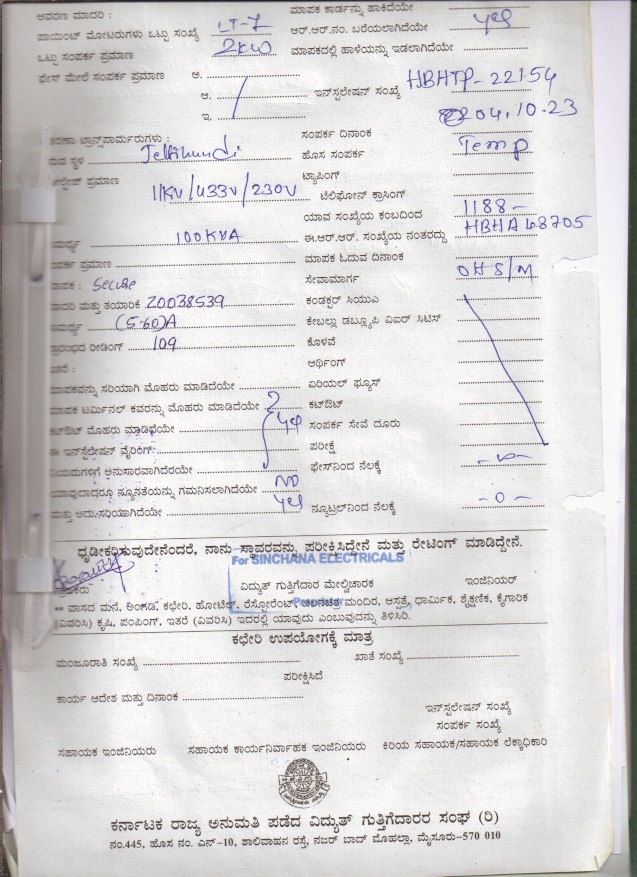 ಆವರಣ ಮಾದರಿ : ಮಾಪಕ ಕಾರ್ಡನ್ನು ಹಾಕಿದೆಯೇ
ಪಾಯಿಂಟ್ ಮೋಟರುಗಳು ಒಟ್ಟು ಸಂಖ್ಯೆ LT-7 ಆರ್.ಆರ್.ನಂ. ಬರೆಯಲಾಗಿದೆಯೇ
ಒಟ್ಟು ಸಂಪರ್ಕ ಪ್ರಮಾಣ 2KW ಮಾಪಕದಲ್ಲಿ ಹಾಳೆಯನ್ನು ಇಡಲಾಗಿದೆಯೇ
ಫೇಸ್ ಮೇಲೆ ಸಂಪರ್ಕ ಪ್ರಮಾಣ ಅ.
ಆ. ಇನ್‌ಸ್ಟಲೇಷನ್ ಸಂಖ್ಯೆ HBHTP-22154
ಇ. 04.10.23
ಟ್ರಾನ್ಸ್‌ಫಾರ್ಮರುಗಳು : ಸಂಪರ್ಕ ದಿನಾಂಕ
ಸ್ಥಳ ಹೊಸ ಸಂಪರ್ಕ Temp
ಪ್ರಮಾಣ ಟ್ಯಾಪಿಂಗ್
11KV/433V/230V ಟೆಲಿಫೋನ್ ಕ್ರಾಸಿಂಗ್
ಯಾವ ಸಂಖ್ಯೆಯ ಕಂಬದಿಂದ 1188-
100KVA ಈ.ಆರ್.ಆರ್. ಸಂಖ್ಯೆಯ ನಂತರದ್ದು HBHA 48705
ಪ್ರಮಾಣ ಮಾಪಕ ಓದುವ ದಿನಾಂಕ
Secure ಸೇವಾಮಾರ್ಗ OHS/M
ಮತ್ತು ತಯಾರಿಕೆ 20038539 ಕಂಡಕ್ಟರ್ ಸಿಯುಎ
(5-60)A ಕೇಬಲ್ಲು ಡಬ್ಲ್ಯೂಪಿ ವಿಐರ್ ಸಿಟಿಸ್
ರೀಡಿಂಗ್ 109 ಕೊಳವೆ
ಇತರೆ : ಅರ್ಥಿಂಗ್
ಮಾಪಕವನ್ನು ಸರಿಯಾಗಿ ಮೊಹರು ಮಾಡಿದೆಯೇ ಏರಿಯಲ್ ಫ್ಯೂಸ್
ಮಾಪಕ ಟರ್ಮಿನಲ್ ಕವರನ್ನು ಮೊಹರು ಮಾಡಿದೆಯೇ ಕಟ್‌ಔಟ್
ಕಟ್‌ಔಟ್ ಮೊಹರು ಮಾಡಿದೆಯೇ ಸಂಪರ್ಕ ಸೇವೆ ದೂರು
ಈ ಇನ್‌ಸ್ಟಲೇಷನ್ ವೈರಿಂಗ್ ಪರೀಕ್ಷೆ
ನಿಯಮಗಳಿಗೆ ಅನುಸಾರವಾಗಿದೆಯೇ ಫೇಸ್‌ನಿಂದ ನೆಲಕ್ಕೆ
ಯಾವುದಾದರೂ ನ್ಯೂನತೆಯನ್ನು ಗಮನಿಸಲಾಗಿದೆಯೇ NO
ಮತ್ತು ಅದು ಸರಿಯಾಗಿದೆಯೇ ನ್ಯೂಟ್ರಲ್‌ನಿಂದ ನೆಲಕ್ಕೆ -0-
ಧೃಡೀಕರಿಸುವುದೇನೆಂದರೆ, ನಾನು ಸ್ಥಾವರವನ್ನು ಪರೀಕ್ಷಿಸಿದ್ದೇನೆ ಮತ್ತು ರೇಟಿಂಗ್ ಮಾಡಿದ್ದೇನೆ.
For SINCHANA ELECTRICALS
ವಿದ್ಯುತ್ ಗುತ್ತಿಗೆದಾರ ಮೇಲ್ವಿಚಾರಕ ಇಂಜಿನಿಯರ್
** ವಾಸದ ಮನೆ, ಅಂಗಡಿ, ಕಛೇರಿ, ಹೋಟೆಲ್, ರೆಸ್ಟೋರೆಂಟ್, ಚಲನಚಿತ್ರ ಮಂದಿರ, ಆಸ್ಪತ್ರೆ, ಧಾರ್ಮಿಕ, ಶೈಕ್ಷಣಿಕ, ಕೈಗಾರಿಕ
(ವಿವರಿಸಿ) ಕೃಷಿ, ಪಂಪಿಂಗ್, ಇತರೆ (ವಿವರಿಸಿ) ಇದರಲ್ಲಿ ಯಾವುದು ಎಂಬುವುದನ್ನು ತಿಳಿಸಿರಿ.
ಕಛೇರಿ ಉಪಯೋಗಕ್ಕೆ ಮಾತ್ರ
ಮಂಜೂರಾತಿ ಸಂಖ್ಯೆ ಖಾತೆ ಸಂಖ್ಯೆ
ಪರೀಕ್ಷಿಸಿದೆ
ಕಾರ್ಯ ಆದೇಶ ಮತ್ತು ದಿನಾಂಕ
ಇನ್‌ಸ್ಟಲೇಷನ್ ಸಂಖ್ಯೆ
ಸಂಪರ್ಕ ಸಂಖ್ಯೆ
ಸಹಾಯಕ ಇಂಜಿನಿಯರು ಸಹಾಯಕ ಕಾರ್ಯನಿರ್ವಾಹಕ ಇಂಜಿನಿಯರು ಕಿರಿಯ ಸಹಾಯಕ/ಸಹಾಯಕ ಲೆಕ್ಕಾಧಿಕಾರಿ
ಕರ್ನಾಟಕ ರಾಜ್ಯ ಅನುಮತಿ ಪಡೆದ ವಿದ್ಯುತ್ ಗುತ್ತಿಗೆದಾರರ ಸಂಘ (ರಿ)
ನಂ.445, ಹೊಸ ನಂ. ಎನ್-10, ಶಾಲಿವಾಹನ ರಸ್ತೆ, ನಜರ್ ಬಾದ್ ಮೊಹಲ್ಲಾ, ಮೈಸೂರು-570 010